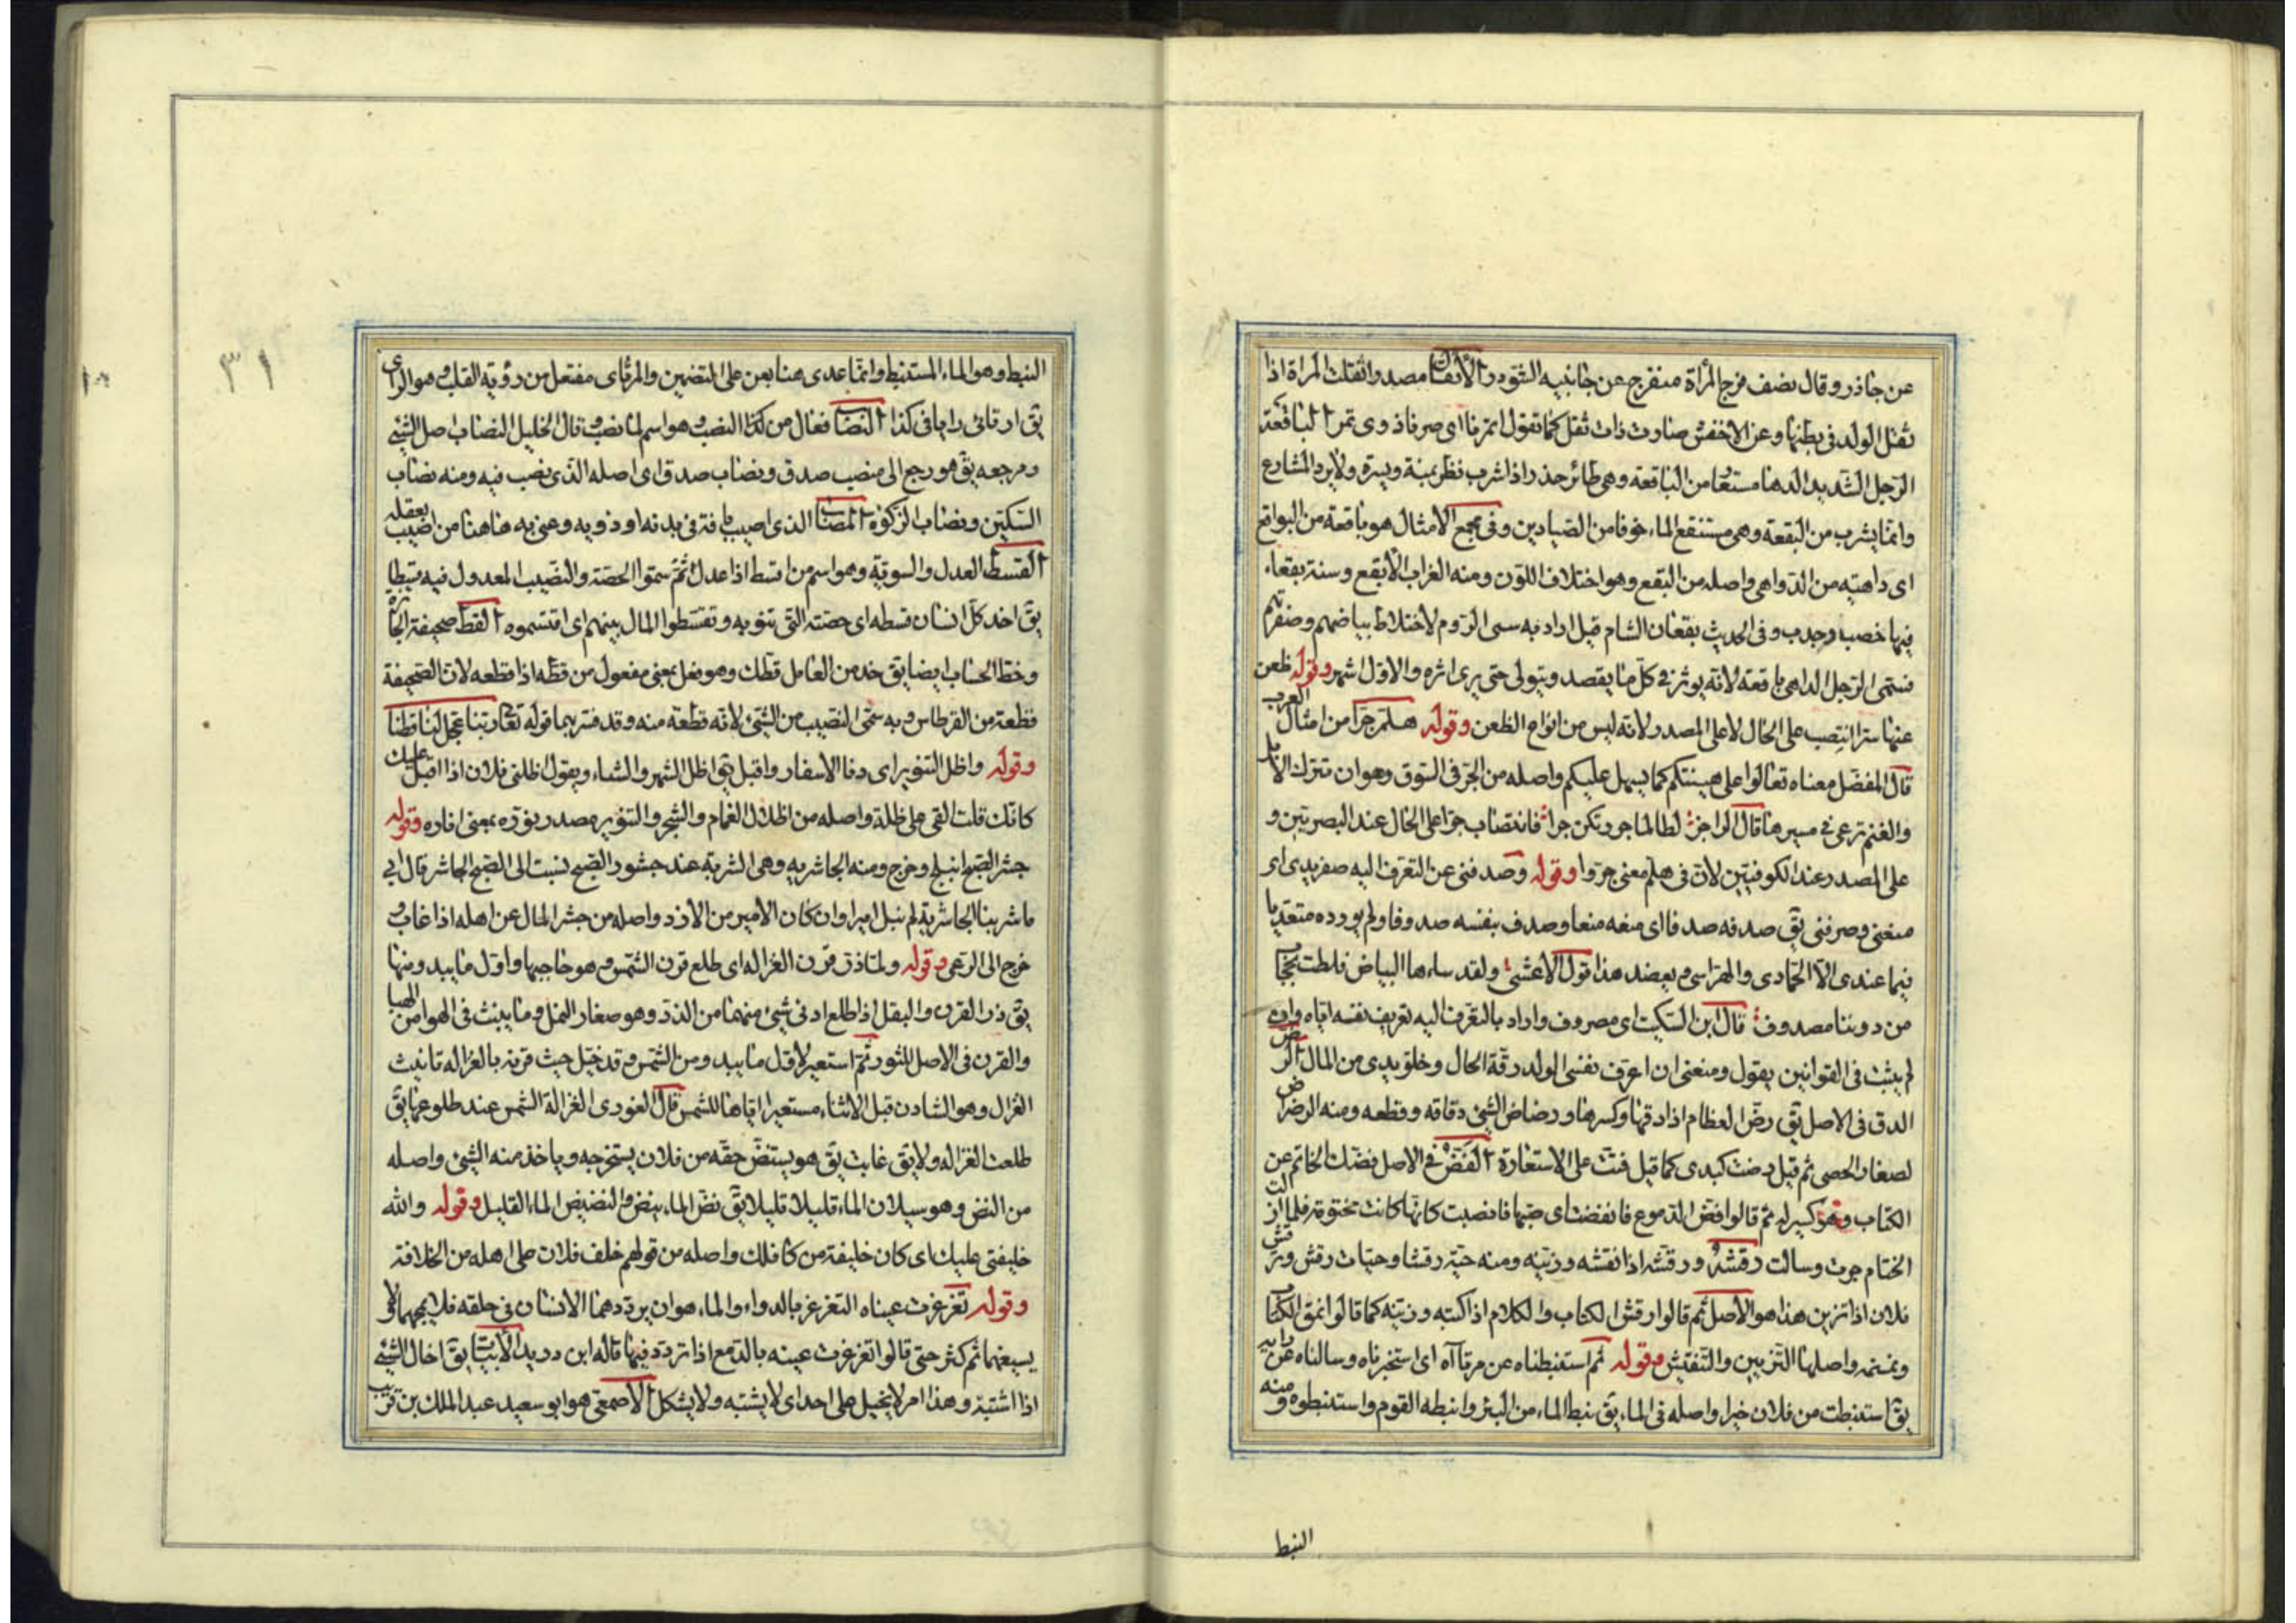 عن جاذر وقال نصف فرج المرأة منفرج عن جانبيه الشوذر الأثقال مصدر اثقلت المرأة اذا
ثقل الولد فى بطنها وعن الاخفش صارت ذات ثقل كما تقول اتمرنا اى صرنا ذوى تمر الباقعة
الرجل الشديد الدهاء مستعار من الباقعة وهى طائر حذر اذا شرب نظر يمنة ويسرة ولا يرد المشارع
وانما يشرب من البقعة وهى مستنقع الماء خوفا من الصيادين وفى مجمع الامثال هو باقعة من البواقع
اى داهية من الدواهى واصله من البقع وهو اختلاف اللون ومنه الغراب الأبقع وسنة بقعاء
فيها خصب وجدب وفى الحديث بقعان الشام قيل اراد به سبى الروم لاختلاط بياضهم وصفرتهم
فسمى الرجل الداهى باقعة لانه يوثر فى كل ما يقصد ويتولى حتى يرى اثره والاول اشهر وقوله ظعن
عنها سرا انتصب على الحال لا على المصدر ولانه ليس من انواع الظعن وقوله هلم جرا من امثال العرب
قال المفضل معناه تعالوا على هينتكم كما يسهل عليكم واصله من الجر فى السوق وهو ان تترك الابل
والغنم ترعى فى مسيرها قال الراجز لطالما جررتكن جرا فانتصاب جرا على الحال عند البصريين و
على المصدر عند الكوفيين لان فى هلم معنى جروا وقوله وصدفنى عن التعرف اليه صفر يدى اى
منعنى وصرفنى يق صدفه صدفا اى منعه منعا وصدف بنفسه صدوفا ولم يورده متعديا
فيما عندى الا الحمادى والهراسى ويعضد هذا قول الاعشى ولقد ساءها البياض فلطت بحجاب
من دوننا مصدوف قال ابن السكيت اى مصروف واراد بالتعرف اليه تعريف نفسه اياه وان
لم يثبت فى القوانين يقول ومنعنى ان اعرف نفسى الولد رقة الحال وخلو يدى من المال الرض
الدق فى الاصل يق رض العظام اذا دقها وكسرها ورضاض الشئ دقاقه وقطعه ومنه الرضراض
لصغار الحصى ثم قيل رضت كبدى كما قيل فتت على الاستعارة الفض فى الاصل فضك الخاتم عن
الكتاب وهو كسر له ثم قالوا افض الدموع فانفضت اى صبها فانصبت كانها كانت مختومة فلما ازلت
الختام جرت وسالت رقشه ورقشه اذا نقشه وزينه ومنه حية رقشا وحيات رقش وترقش
فلان اذا تزين هذا هو الأصل ثم قالوا رقش الكتاب والكلام اذا كتبه وزينه كما قالوا نمق الكتاب
ونمنمه واصلها التزيين والتنقيش وقوله ثم استنبطناه عن مرتآه اى استخبرناه وسالناه عن رايه
يق استنبطت من فلان خبرا واصله فى الماء يق نبط الماء من البئر وانبطه القوم واستنبطوه ومنه
النبط
٣١
النبط وهو الماء المستنبط وانما عدى هنا بعن على التضمين والمرتاى مفتعل من رؤية القلب وهو الراى
يق ارتائى رايا فى كذا النصاب فعال من كذا النصب وهو اسم لما نصب قال الخليل النصاب اصل الشئ
ومرجعه يق هو رجع الى منصب صدق ونصاب صدق اى اصله الذى نصب فيه ومنه نصاب
السكين ونصاب الزكوة المصاب الذى اصيب بآفة فى بدنه او ذويه وعنى به هاهنا من اصيب بعقله
القسط العدل والسوية وهو اسم من اقسط اذا عدل ثم سموا الحصة والنصيب المعدول فيه قسطا
يق اخذ كل انسان قسطه اى حصته التى تنوبه وتقسطوا المال بينهم اى اقتسموه القط صحيفة الجائزة
وخط الحساب ايضا يق خذ من العامل قطك وهو فعل بمعنى مفعول من قطه اذا قطعه لان الصحيفة
قطعة من القرطاس وبه سمى النصيب من الشئ لانه قطعة منه وقد فسر بهما قوله تعالى ربنا عجل لنا قطنا
وقوله واظل التنوير اى دنا الاسفار واقبل يق اظل الشهر والشتاء ويقول اظلنى فلان اذا اقبل عليك
كانك قلت القى على ظله واصله من اظلال الغمام والشجر والتنوير مصدر نوره بمعنى اناره وقوله
جشر الصبح انبلج وخرج ومنه الجاشرية وهى الشربة عند جشور الصبح نسبت الى الصبح الجاشر قال ابى
ما شربنا الجاشرية لم نبل اميرا وان كان الامير من الازد واصله من جشر المال عن اهله اذا غاب و
خرج الى الرعى وقوله ولما ذر قرن الغزاله اى طلع قرن الشمس وهو حاجبها واول ما يبدو منها
يق ذر القرن والبقل اذا طلع ادنى شئ منهما من الذر وهو صغار النمل وما ينبث فى الهوا من الهبا
والقرن فى الاصل للثور ثم استعير لاول ما يبدو من الشمس وقد خيل حيث قرنه بالغزاله تانيث
الغزال وهو الشادن قبل الاثناء مستعيرا اياها للشمس قال الغورى الغزالة الشمس عند طلوعها يق
طلعت الغزاله ولا يق غابت يق هو يستنض حقه من فلان يستخرجه وياخذ منه الشئ واصله
من النض وهو سيلان الماء قليلا قليلا يق نض الماء ينض والنضيض الماء القليل وقوله والله
خليفتى عليك اى كان خليفة من كافلك واصله من قولهم خلف فلان على اهله من الخلافة
وقوله تغرغرت عيناه التغرغر بالدواء والماء هو ان يرددهما الانسان فى حلقه فلا يمجهما ولا
يسيغهما ثم كثر حتى قالوا تغرغرت عينه بالدمع اذا تردد فيها قاله ابن دريد يق اخال الشئ
اذا اشتبه وهذا امر لا يخيل على احد اى لا يشتبه ولا يشكل الاصمعى هو ابو سعيد عبد الملك بن قريب